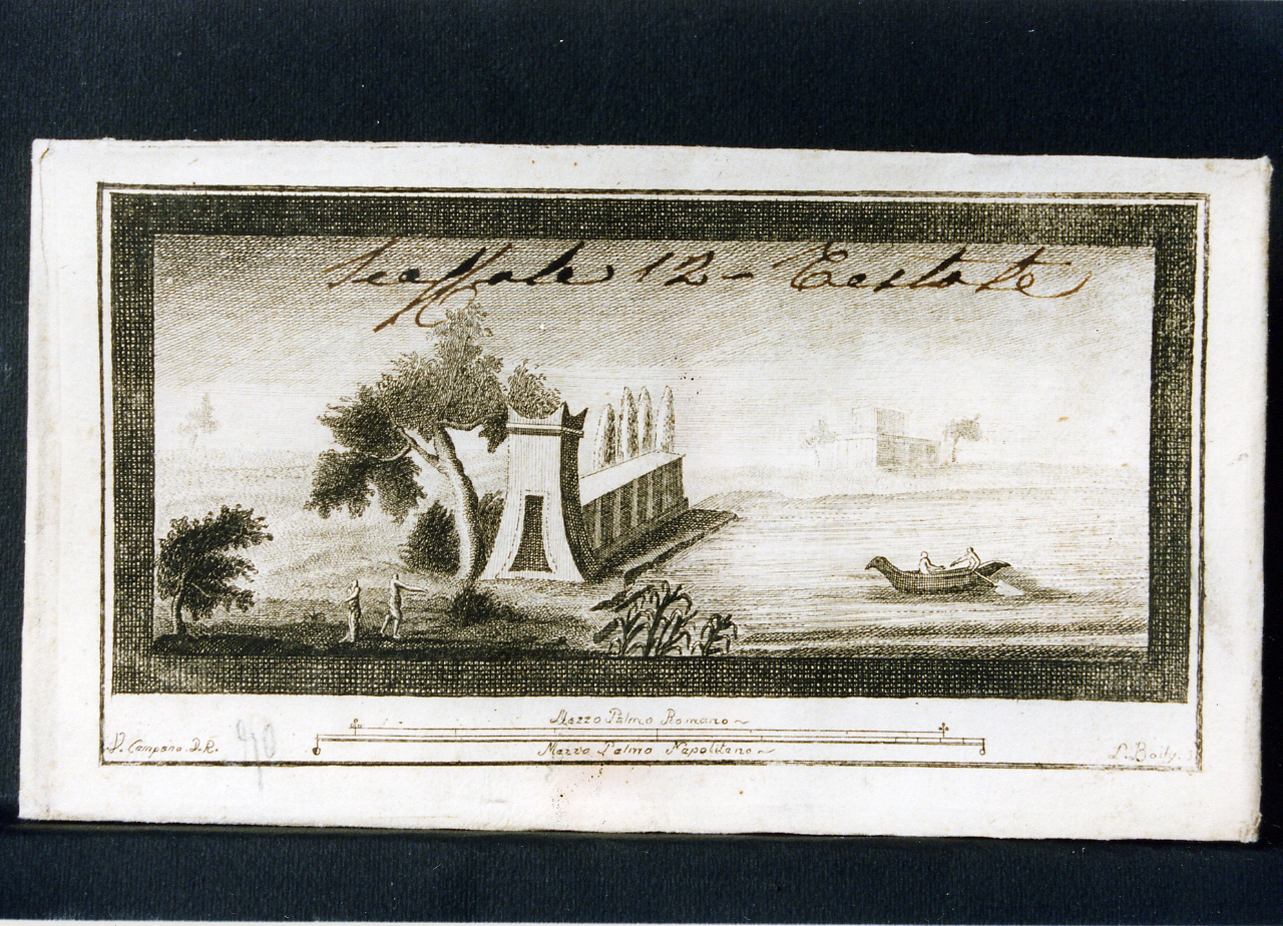 Scaffale 12 -
Mezzo Palmo Romano
Mezzo Palmo Napolitano
V. Campana D. R.
90
L. Boily.